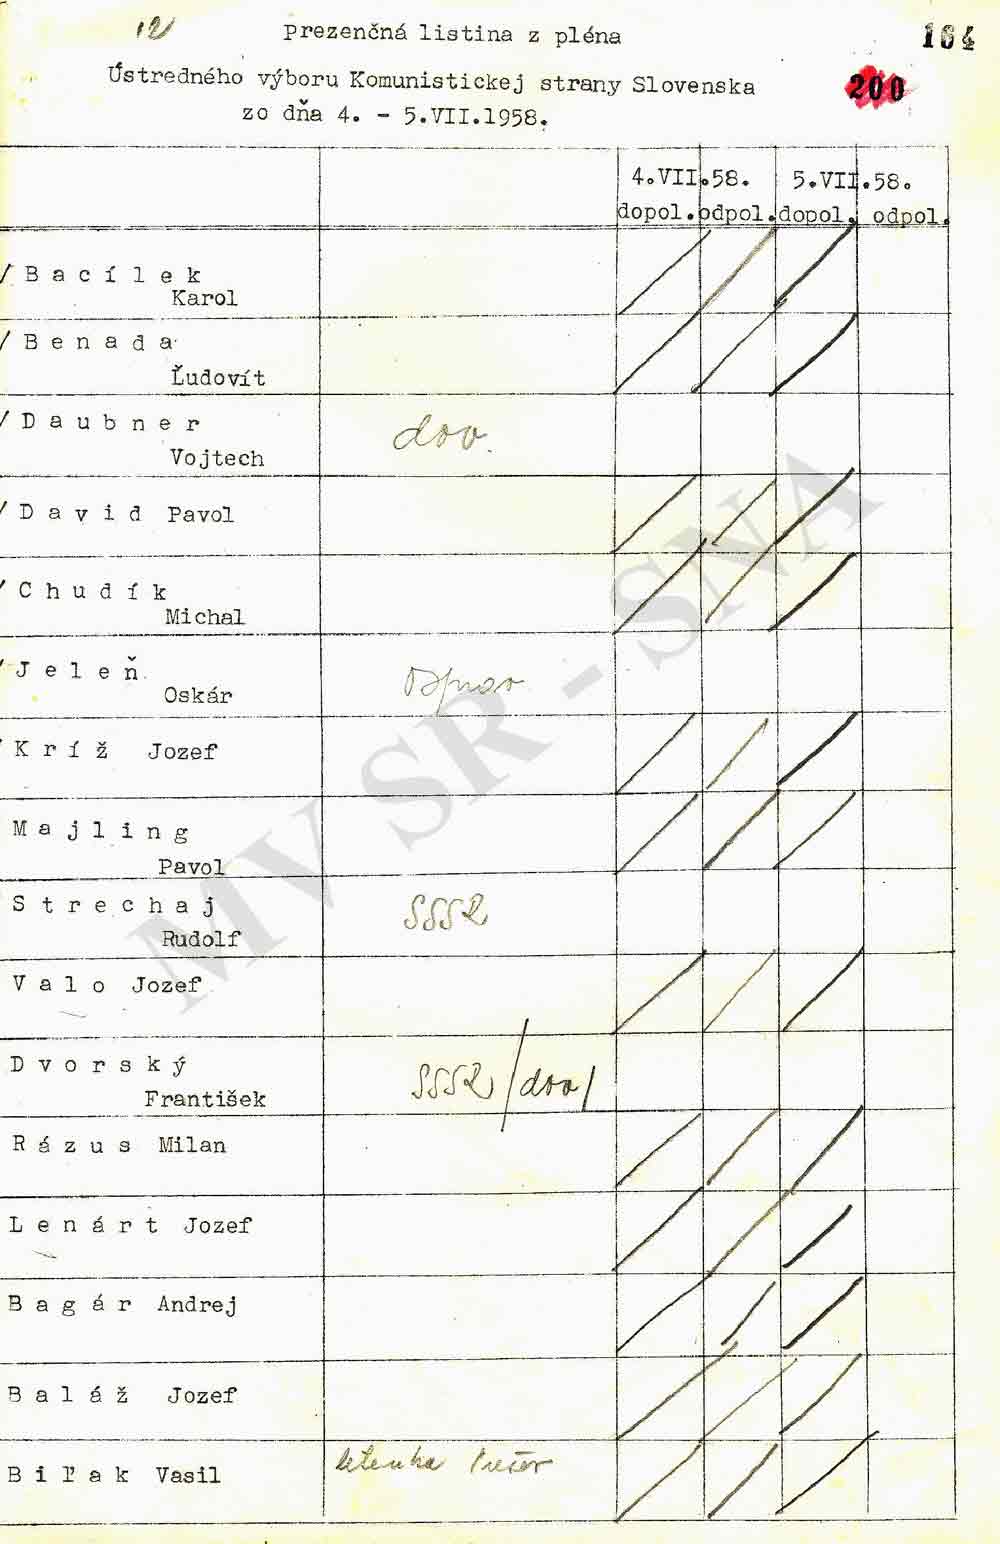 12
Prezenčná listina z pléna
164
Ústredného výboru Komunistickej strany Slovenska
200
zo dňa 4. - 5.VII.1958.
4.VII.58. 5.VII.58.
dopol. odpol. dopol. odpol.
/ B a c í l e k
Karol
/ B e n a d a
Ľudovít
/ D a u b n e r
dov.
Vojtech
/ D a v i d Pavol
/ C h u d í k
Michal
/ J e l e ň
Oskár
/ K r í ž Jozef
M a j l i n g
Pavol
S t r e c h a j
SSSR
Rudolf
V a l o Jozef
D v o r s k ý
SSSR /dov/
František
R á z u s Milan
L e n á r t Jozef
B a g á r Andrej
B a l á ž Jozef
B i ľ a k Vasil
letenka
MV SR - SNA